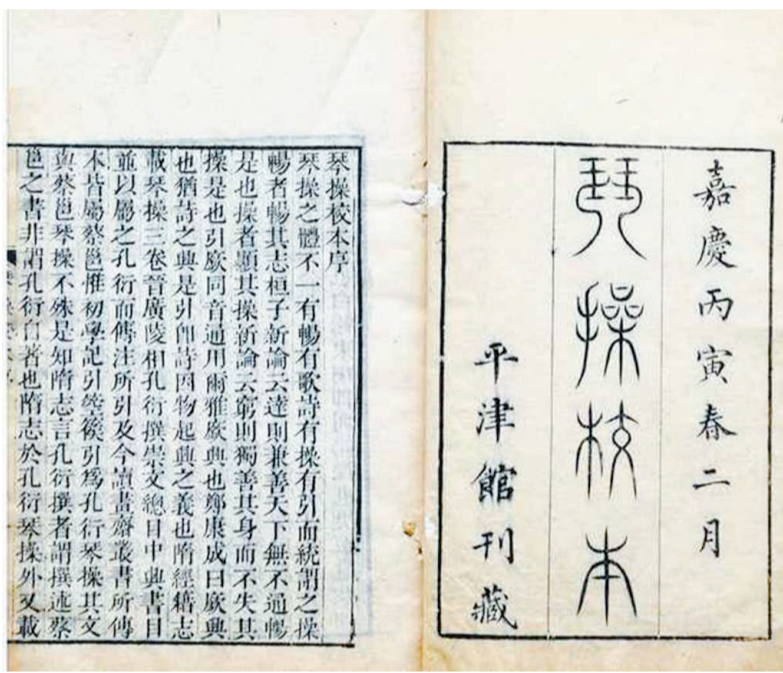 嘉慶丙寅春二月
琴操校本
平津館刊藏
琴操校本序
琴操之體不一有暢有歌詩有操有引而統謂之操
暢者暢其志桓子新論云達則兼善天下無不通暢
是也操者顯其操新論云窮則獨善其身而不失其
操是也引廞同音通用爾雅廞興也鄭康成曰廞興
也猶詩之興是引卽詩因物起興之義也隋經籍志
載琴操三卷晉廣陵相孔衍撰崇文總目中興書目
並以屬之孔衍而傳注所引及今讀畫齋叢書所傳
本皆屬蔡邕惟初學記引箜篌引爲孔衍琴操其文
與蔡邕琴操不殊是知隋志言孔衍撰者謂撰述蔡
邕之書非謂孔衍自著也隋志於孔衍琴操外又載